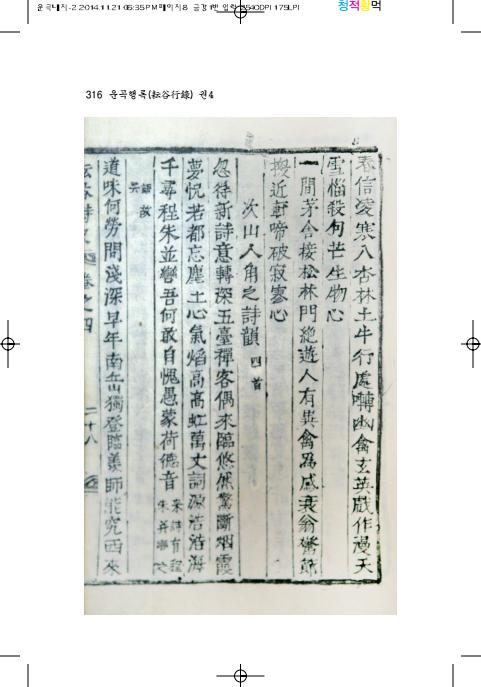 운곡내지-2 2014.11.21 05:35 PM 페이지8
청적황먹
316 운곡행록(耘谷行錄) 권4
春信凌寒入杏林土牛行處囀幽禽玄英戱作漫天
雪惱殺句芒生物心
一間茅舍接松林門絶遊人有異禽爲感衰翁驚節
換近軒啼破寂寥心
次山人角之詩韻 四首
忽待新詩意轉深五臺禪客偶來臨悠然驚斷烟霞
夢怳若都忘塵土心氣焰高高虹萬丈詞源浩浩海
千尋程朱並轡吾何敢自愧愚蒙荷德音 來詩有程朱並轡之
語故
道味何勞問淺深早年南岳獨登臨羨師能究西來
耘谷詩史 卷之四 二十八